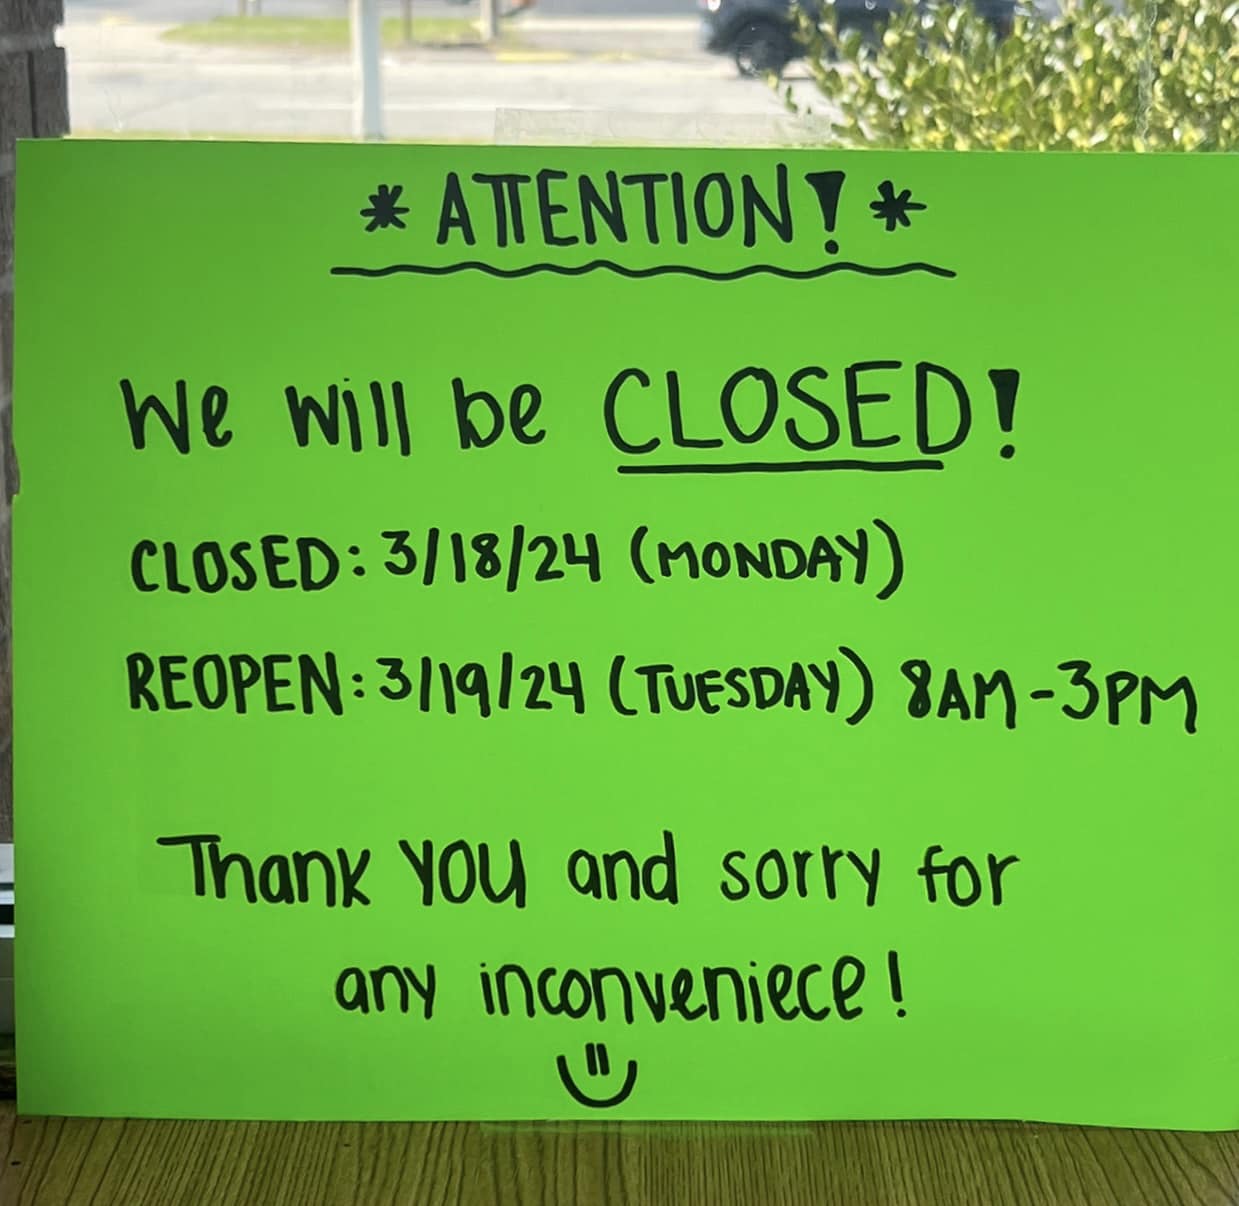 * ATTENTION! *
We will be CLOSED!
CLOSED: 3/18/24 (MONDAY)
REOPEN: 3/19/24 (TUESDAY) 8AM-3PM
Thank you and sorry for
any inconveniece!